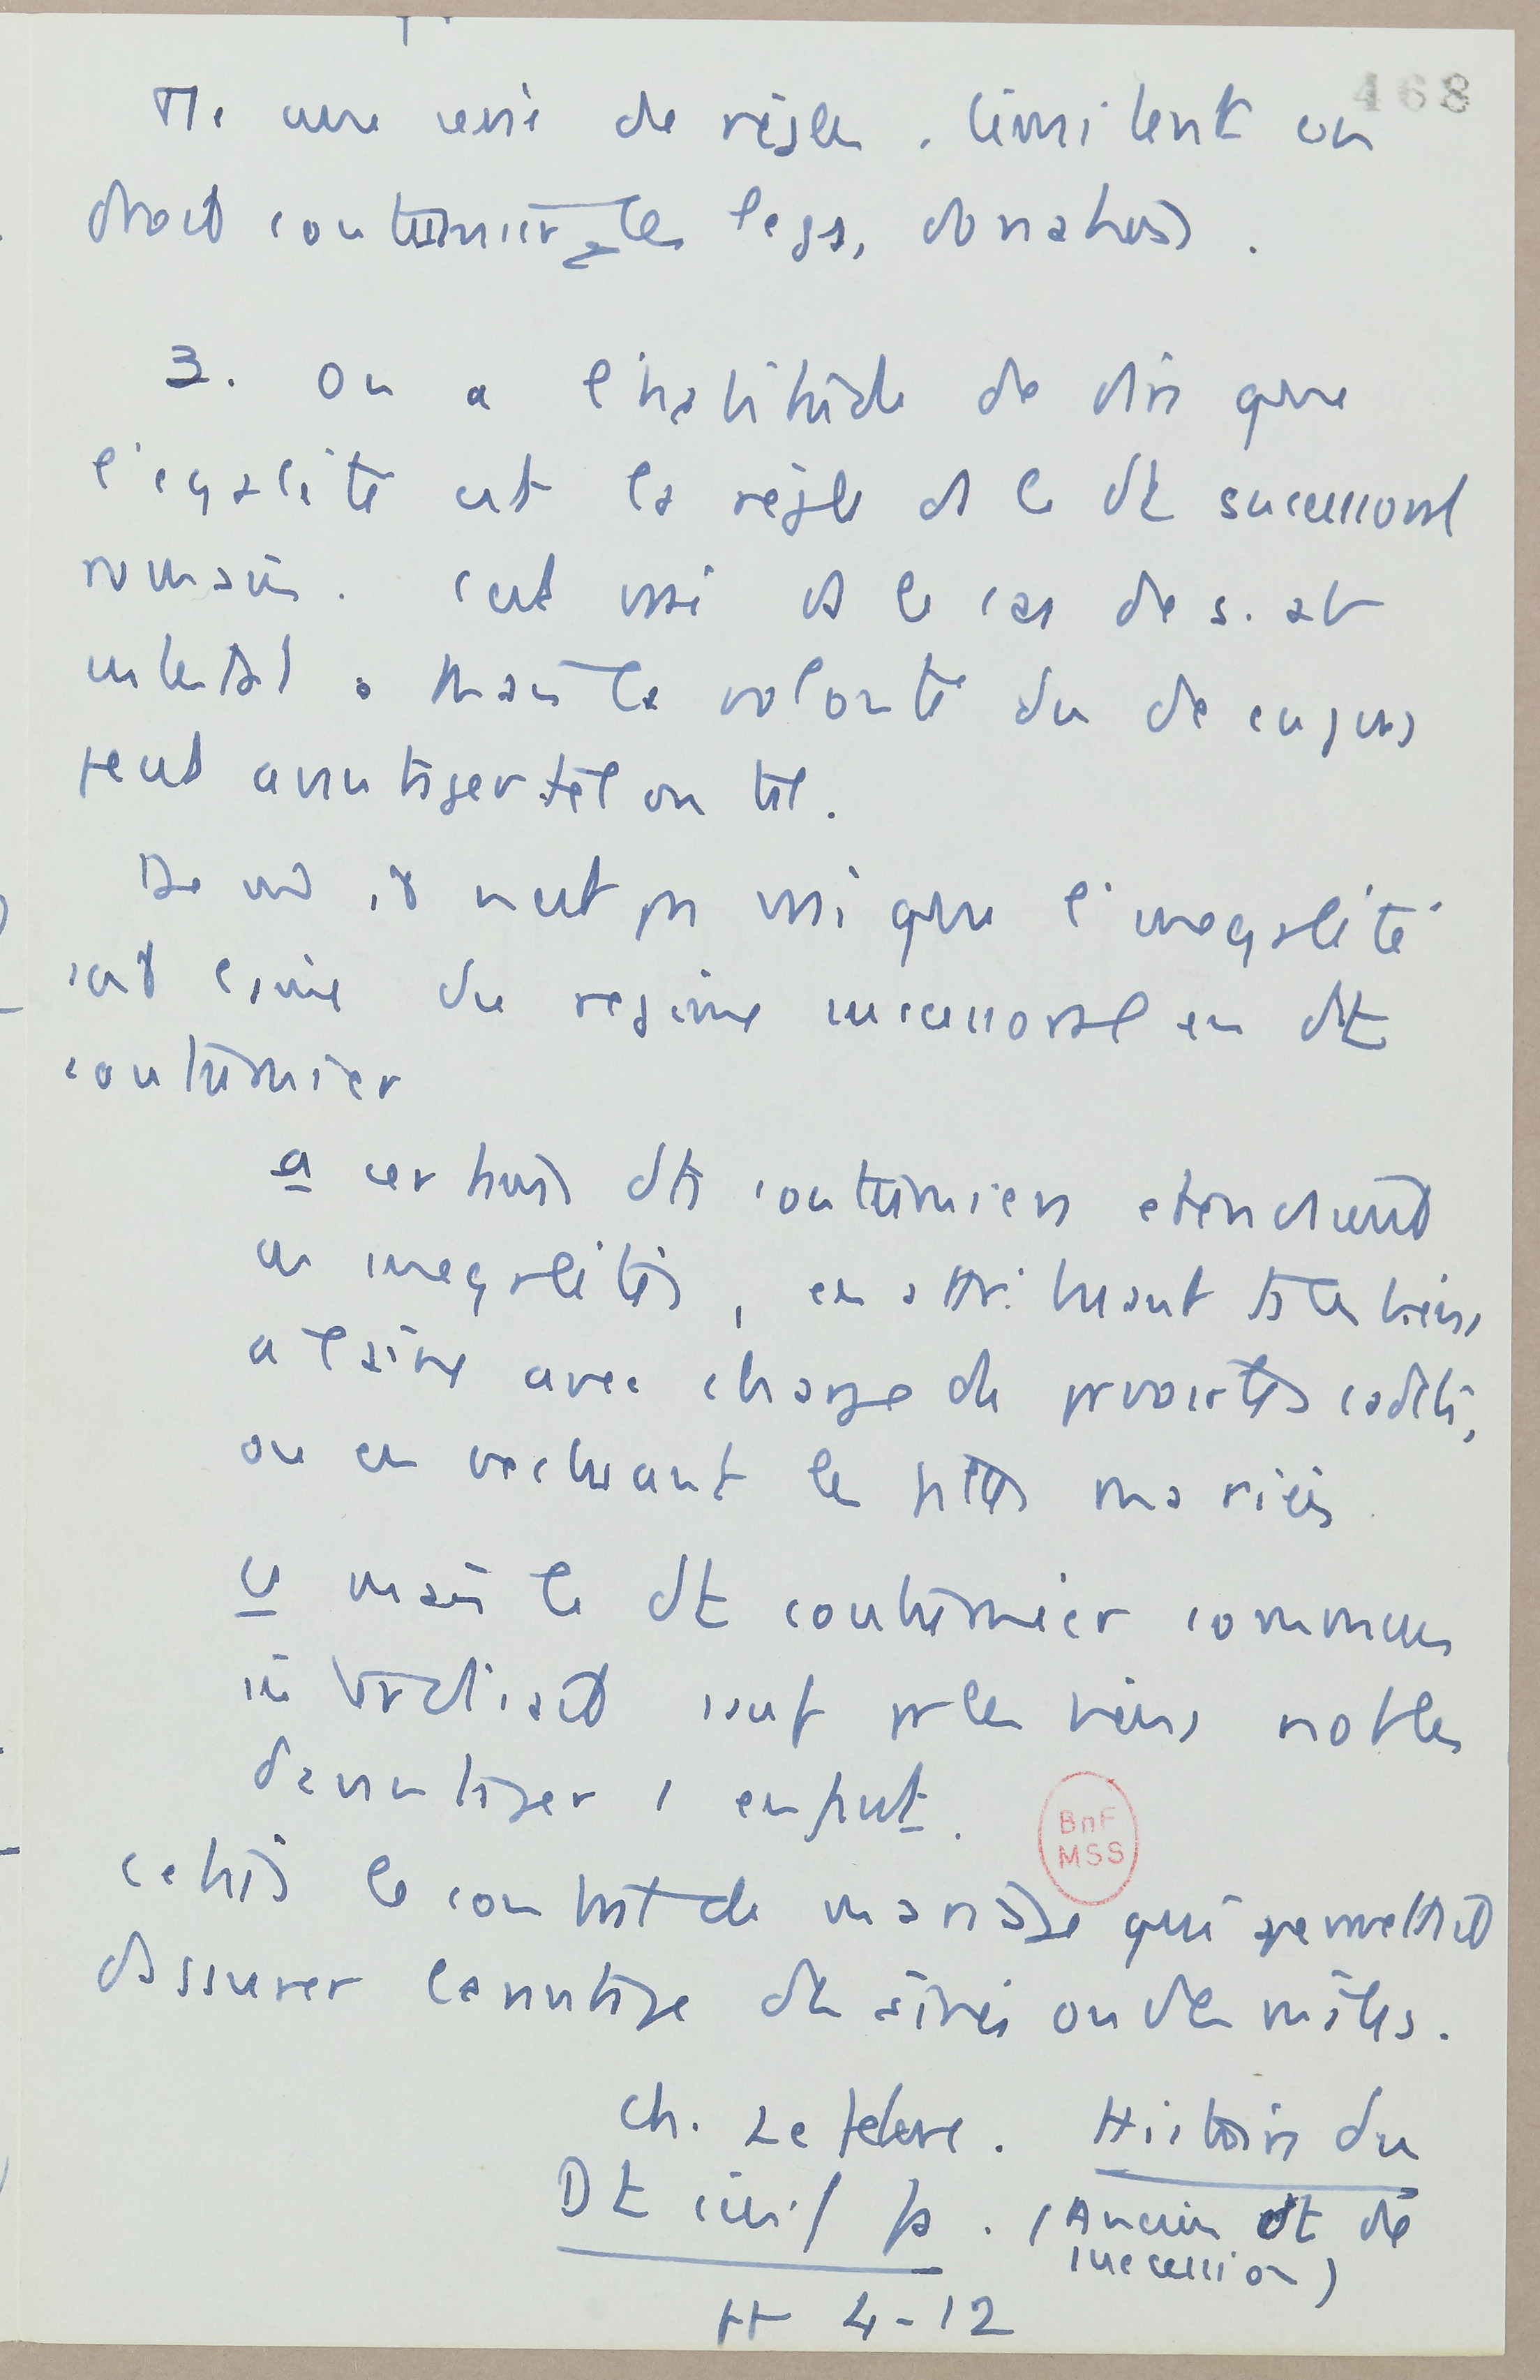 468
Ms une série de règles limitent en
droit coutumier les legs, donations.
3. On a l'habitude de dire que
l'égalité est la règle ds le dt successoral
romain. C'est vrai ds le cas de s. ab
intestat : mais la volonté du de cujus
peut avantager tel ou tel.
De md il n'est pas vrai que l'inégalité
soit l'âme du régime successoral en dt
coutumier
a certains dts coutumiers étendront
les inégalités, en attribuant ts les biens
à l'aîné avec charge de pourvoir les cadets,
ou en excluant les filles mariées.
b mais le dt coutumier commun
interdisait sauf pr les biens nobles
d'avantager 1 enfant.
C'était le contrat de mariage qui permettait
d'assurer l'avantage des aînés ou des mâles.
BnF
MSS
Ch. Lefebvre. Histoire du
Dt civil fs. (Ancien dt de
succession)
pp 4-12